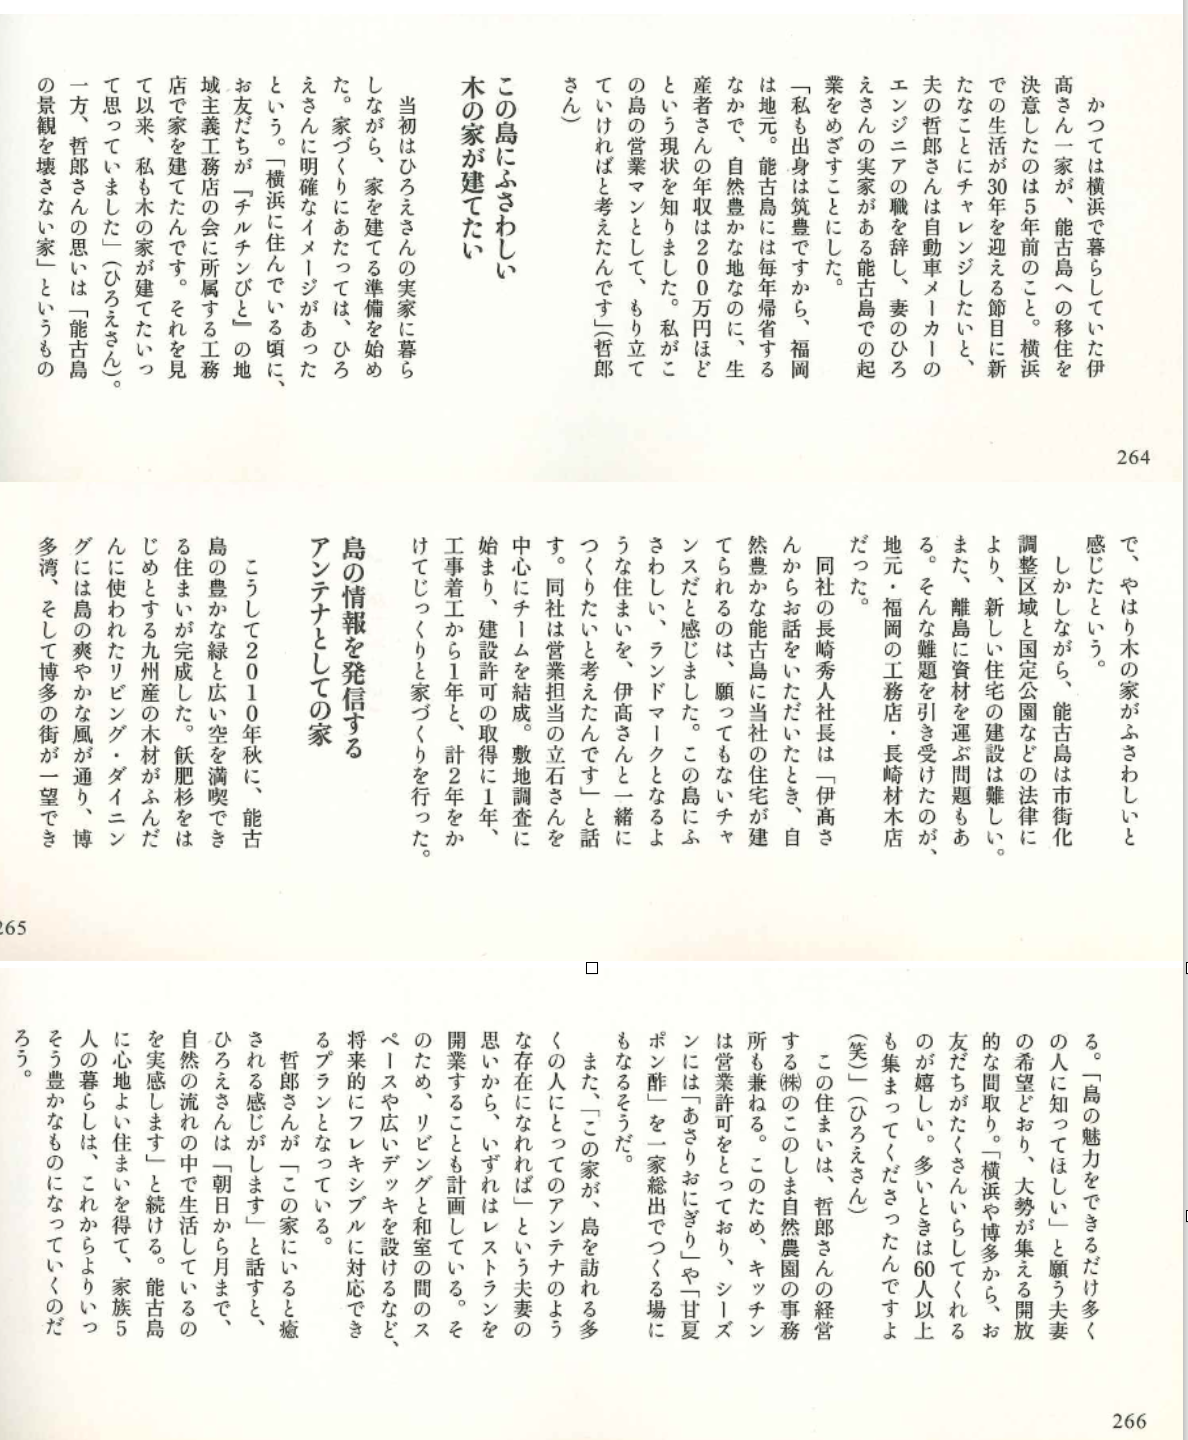 かつては横浜で暮らしていた伊
髙さん一家が、能古島への移住を
決意したのは5年前のこと。横浜
での生活が30年を迎える節目に新
たなことにチャレンジしたいと、
夫の哲郎さんは自動車メーカーの
エンジニアの職を辞し、妻のひろ
えさんの実家がある能古島での起
業をめざすことにした。
「私も出身は筑豊ですから、福岡
は地元。能古島には毎年帰省する
なかで、自然豊かな地なのに、生
産者さんの年収は200万円ほど
という現状を知りました。私がこ
の島の営業マンとして、もり立て
ていければと考えたんです」（哲郎
さん）
この島にふさわしい
木の家が建てたい
当初はひろえさんの実家に暮ら
しながら、家を建てる準備を始め
た。家づくりにあたっては、ひろ
えさんに明確なイメージがあった
という。「横浜に住んでいる頃に、
お友だちが『チルチンびと』の地
域主義工務店の会に所属する工務
店で家を建てたんです。それを見
て以来、私も木の家が建てたいっ
て思っていました」（ひろえさん）。
一方、哲郎さんの思いは「能古島
の景観を壊さない家」というもの
264
で、やはり木の家がふさわしいと
感じたという。
しかしながら、能古島は市街化
調整区域と国定公園などの法律に
より、新しい住宅の建設は難しい。
また、離島に資材を運ぶ問題もあ
る。そんな難題を引き受けたのが、
地元・福岡の工務店・長崎材木店
だった。
同社の長崎秀人社長は「伊髙さ
んからお話をいただいたとき、自
然豊かな能古島に当社の住宅が建
てられるのは、願ってもないチャ
ンスだと感じました。この島にふ
さわしい、ランドマークとなるよ
うな住まいを、伊髙さんと一緒に
つくりたいと考えたんです」と話
す。同社は営業担当の立石さんを
中心にチームを結成。敷地調査に
始まり、建設許可の取得に1年、
工事着工から1年と、計2年をか
けてじっくりと家づくりを行った。
島の情報を発信する
アンテナとしての家
こうして2010年秋に、能古
島の豊かな緑と広い空を満喫でき
る住まいが完成した。飫肥杉をは
じめとする九州産の木材がふんだ
んに使われたリビング・ダイニン
グには島の爽やかな風が通り、博
多湾、そして博多の街が一望でき
265
る。「島の魅力をできるだけ多く
の人に知ってほしい」と願う夫妻
の希望どおり、大勢が集える開放
的な間取り。「横浜や博多から、お
友だちがたくさんいらしてくれる
のが嬉しい。多いときは60人以上
も集まってくださったんですよ
（笑）」（ひろえさん）
この住まいは、哲郎さんの経営
する㈱のこのしま自然農園の事務
所も兼ねる。このため、キッチン
は営業許可をとっており、シーズ
ンには「あさりおにぎり」や「甘夏
ポン酢」を一家総出でつくる場に
もなるそうだ。
また、「この家が、島を訪れる多
くの人にとってのアンテナのよう
な存在になれれば」という夫妻の
思いから、いずれはレストランを
開業することも計画している。そ
のため、リビングと和室の間のス
ペースや広いデッキを設けるなど、
将来的にフレキシブルに対応でき
るプランとなっている。
哲郎さんが「この家にいると癒
される感じがします」と話すと、
ひろえさんは「朝日から月まで、
自然の流れの中で生活しているの
を実感します」と続ける。能古島
に心地よい住まいを得て、家族5
人の暮らしは、これからよりいっ
そう豊かなものになっていくのだ
ろう。
266